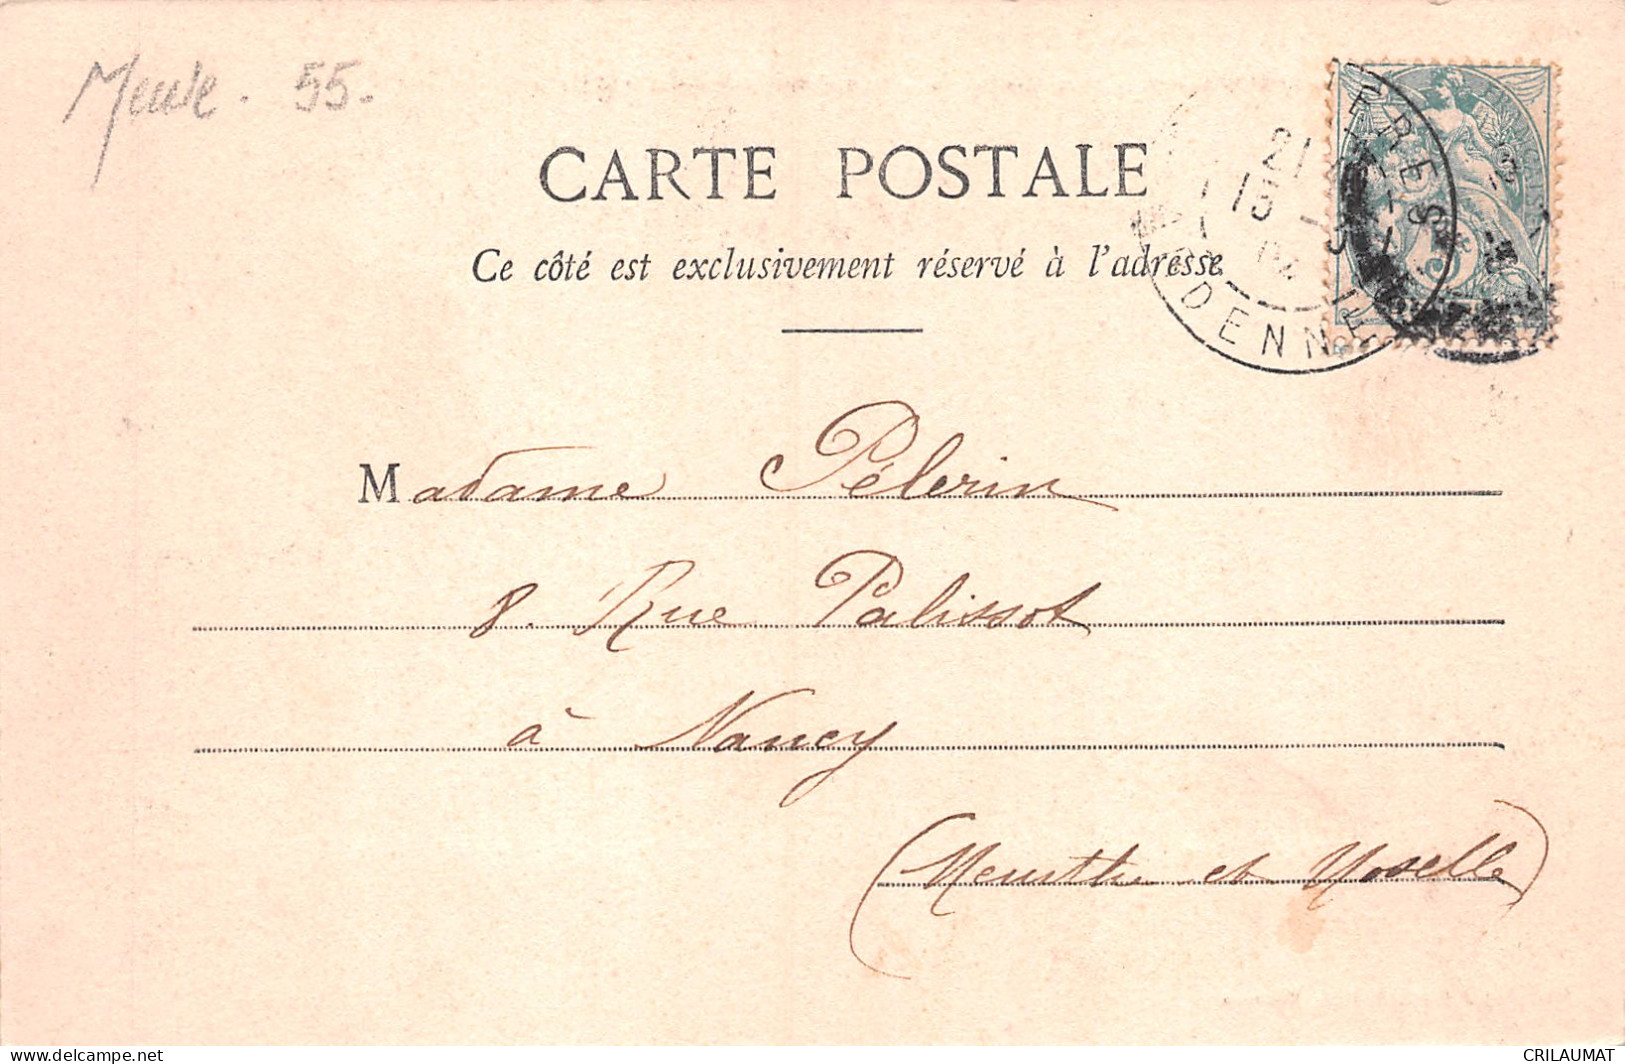 Meuse. 55.
CARTE POSTALE
Ce côté est exclusivement réservé à l'adresse
Madame Pélerin
8. Rue Palissot
à Nancy
(Meurthe et Moselle)
delcampe.net
CRILAUMAT